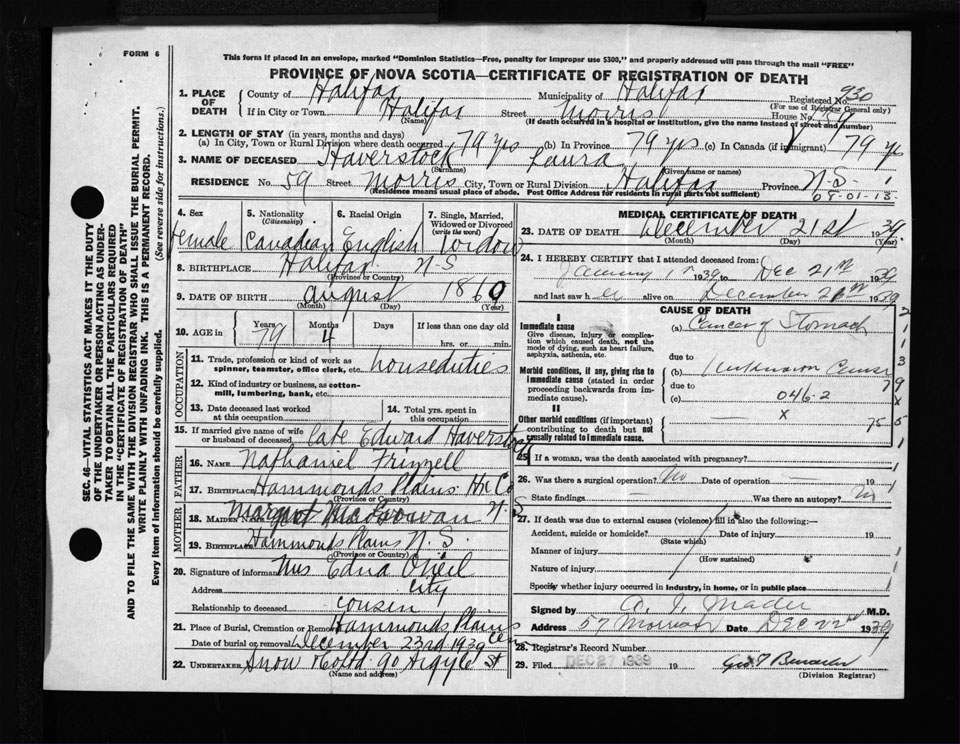 FORM 6
This form if placed in an envelope, marked "Dominion Statistics—Free, penalty for improper use $300," and properly addressed will pass through the mail "FREE"
PROVINCE OF NOVA SCOTIA—CERTIFICATE OF REGISTRATION OF DEATH
1. PLACE OF DEATH County of Halifax Municipality of Halifax Registered No. 930
(For use of Registrar General only)
If in City or Town Halifax Street Morris House No. 59
(Name) (If death occurred in a hospital or institution, give the name instead of street and number)
2. LENGTH OF STAY (in years, months and days)
(a) In City, Town or Rural Division where death occurred 79 yrs (b) In Province 79 yrs (c) In Canada (if immigrant) 79 yrs
3. NAME OF DECEASED Haverstock Laura
(Surname) (Given name or names)
RESIDENCE No. 59 Street Morris City, Town or Rural Division Halifax Province N-S-
(Residence means usual place of abode. Post Office Address for residents in rural parts not sufficient)
09-01-13-
4. Sex female
5. Nationality (Citizenship) Canadian
6. Racial Origin English
7. Single, Married, Widowed or Divorced (write the word) Widow
8. BIRTHPLACE Halifax N-S
(Province or Country)
9. DATE OF BIRTH August 1860
(Month) (Day) (Year)
10. AGE in Years 79 Months 4 Days If less than one day old hrs. or min.
OCCUPATION
11. Trade, profession or kind of work as spinner, teamster, office clerk, etc. houseduties
12. Kind of industry or business, as cotton-mill, lumbering, bank, etc.
13. Date deceased last worked at this occupation
14. Total yrs. spent in this occupation
15. If married give name of wife or husband of deceased Late Edward Haverstock
FATHER
16. NAME Nathaniel Frizzell
17. BIRTHPLACE Hammonds Plains Hx Co
(Province or Country) N-S
MOTHER
18. MAIDEN NAME Margret
19. BIRTHPLACE Hammonds Plains N.S.
(Province or Country)
20. Signature of informant Mrs Edna O'Neil
Address City
Relationship to deceased cousin
21. Place of Burial, Cremation or Removal Hammonds Plains Cem
Date of burial or removal December 23rd 1939
22. UNDERTAKER Snow & Co Ltd 90 Argyle St
(Name and address)
MEDICAL CERTIFICATE OF DEATH
23. DATE OF DEATH December 21st 1939
(Month) (Day) (Year)
24. I HEREBY CERTIFY that I attended deceased from:
January 1st 1939 to Dec 21st 1939
and last saw her alive on December 1939
CAUSE OF DEATH
I
Immediate cause
Give disease, injury or complication which caused death, not the mode of dying, such as heart failure, asphyxia, asthenia, etc.
(a) Cancer of Stomach
due to
Morbid conditions, if any, giving rise to immediate cause (stated in order proceeding backwards from immediate cause).
(b) Unknown Cause
due to
(c) 046-2
x
II
Other morbid conditions (if important) contributing to death but not causally related to immediate cause.
25. If a woman, was the death associated with pregnancy?
26. Was there a surgical operation? No Date of operation 19
State findings Was there an autopsy? No
27. If death was due to external causes (violence) fill in also the following:—
Accident, suicide or homicide? Date of injury 19
(State which)
Manner of injury
(How sustained)
Nature of injury
Specify whether injury occurred in industry, in home, or in public place
Signed by A. I. Mader M.D.
Address 57 Morris St Date Dec 22nd 1939
28. Registrar's Record Number
29. Filed DEC 27 1939 19
(Division Registrar)
SEC. 46—VITAL STATISTICS ACT MAKES IT THE DUTY OF THE UNDERTAKER OR PERSON ACTING AS UNDERTAKER TO OBTAIN ALL THE PARTICULARS REQUIRED IN THE "CERTIFICATE OF REGISTRATION OF DEATH" AND TO FILE THE SAME WITH THE DIVISION REGISTRAR WHO SHALL ISSUE THE BURIAL PERMIT.
WRITE PLAINLY WITH UNFADING INK. THIS IS A PERMANENT RECORD.
Every item of information should be carefully supplied. (See reverse side for instructions.)